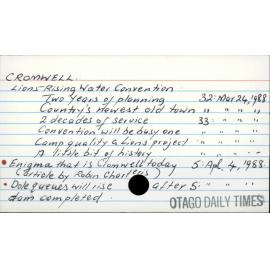 CROMWELL.
Lions-Rising Water Convention
Two Years of planning 32: Mar 24, 1988
Country's newest old town " " " "
2 decades of service 33: " " "
Convention will be busy one " " " "
Camp quality a Lions project " " " "
A little bit of history " " " "
Enigma that is Cromwell today 5: Apl. 4, 1988
(article by Robin Charteris)
Dole queues will rise after 5: " " "
dam completed
OTAGO DAILY TIMES